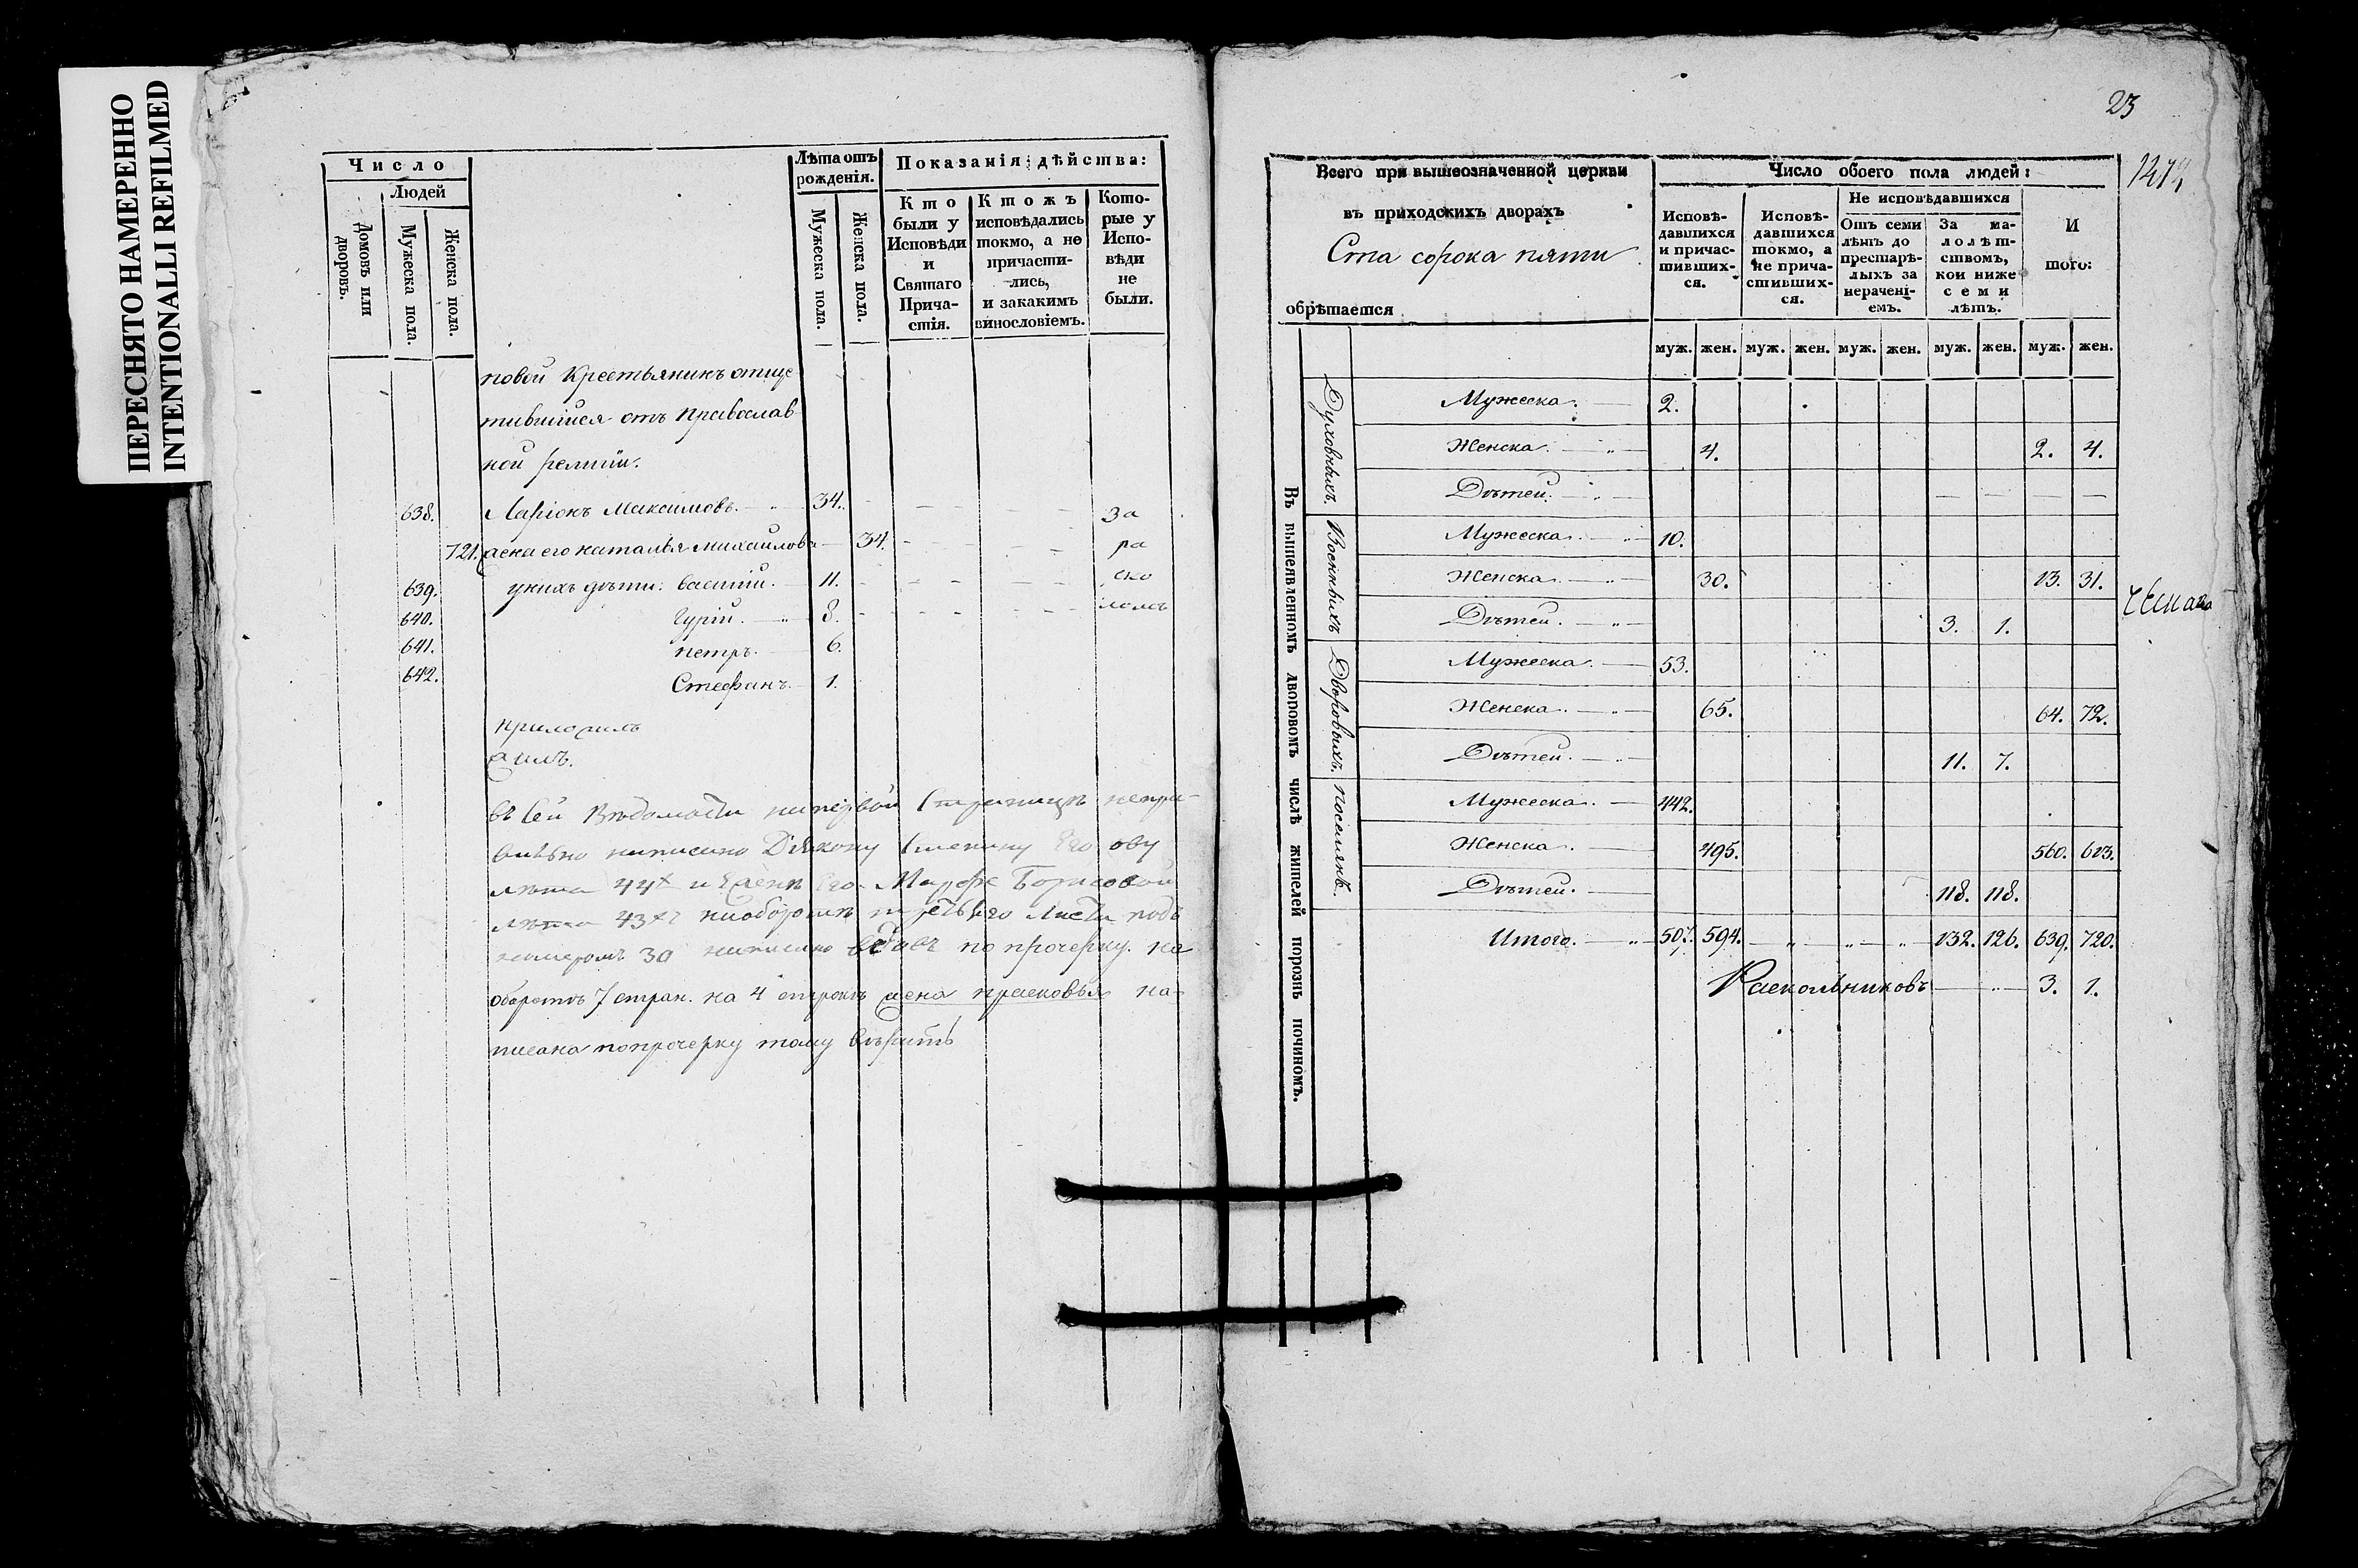 ПЕРЕСНЯТО НАМЕРЕННО
INTENTIONALLI REFILMED
Число
Людей
Домовъ или дворовъ.
Мужеска пола.
Женска пола.
Лѣта отъ рожденія.
Мужеска пола.
Женска пола.
Показанія дѣйства:
Кто были у Исповѣди и Святаго Прича-стія.
Ктожъ исповѣдались токмо, а не причасти-лись, и закакимъ винословіемъ.
Кото-рые у Испо-вѣди не были.
повой Крестьянинъ отще
тившийся отъ православ
ной религіи.
638. Ларіонъ Максимовъ. 34. За
721. жена его наталья михаилова 34. ра
639. у нихъ дѣти: Василій. 11. ско
640. Гурій. 8. ломъ
641. петръ. 6.
642. Стефанъ. 1.
въ Сей Вѣдомости на первой Страницѣ непра-
вильно написано Діякону Его
лѣта 44 и Женѣ Его Марфѣ Борисовой
лѣта 43 на оборотѣ третьяго Листа подъ
номеромъ 30 написано по прочерку. на
оборотѣ 7 стран. на 4 строкѣ жена прасковья на-
писана попрочерку тому вѣрить
23
Всего при вышеозначенной церкви
въ приходскихъ дворахъ
Ста сорока пяти
обрѣтается
Число обоего пола людей:
Исповѣ-давшихся и причас-тивших-ся.
Исповѣ-давшихся токмо, а не прича-стивших-ся.
Не исповѣдавшихся
Отъ семи лѣтъ до престарѣ-лыхъ за нерачені-емъ.
За ма-лолѣт-ствомъ, кои ниже семи лѣтъ.
И того:
муж. жен. муж. жен. муж. жен. муж. жен. муж. жен.
Въ вышеявленномъ дворовомъ числѣ жителей порознь починомъ.
Духовныхъ.
Мужеска. 2.
Женска. 4. 2. 4.
Дѣтей.
Военныхъ
Мужеска. 10.
Женска. 30. 13. 31.
Дѣтей. 3. 1.
Дворовыхъ.
Мужеска. 53.
Женска. 65. 64. 72.
Дѣтей. 11. 7.
поселянъ.
Мужеска. 442.
Женска. 495. 560. 613.
Дѣтей. 118. 118.
Итого. 507. 594. 132. 126. 639. 720.
Раскольниковъ 3. 1.